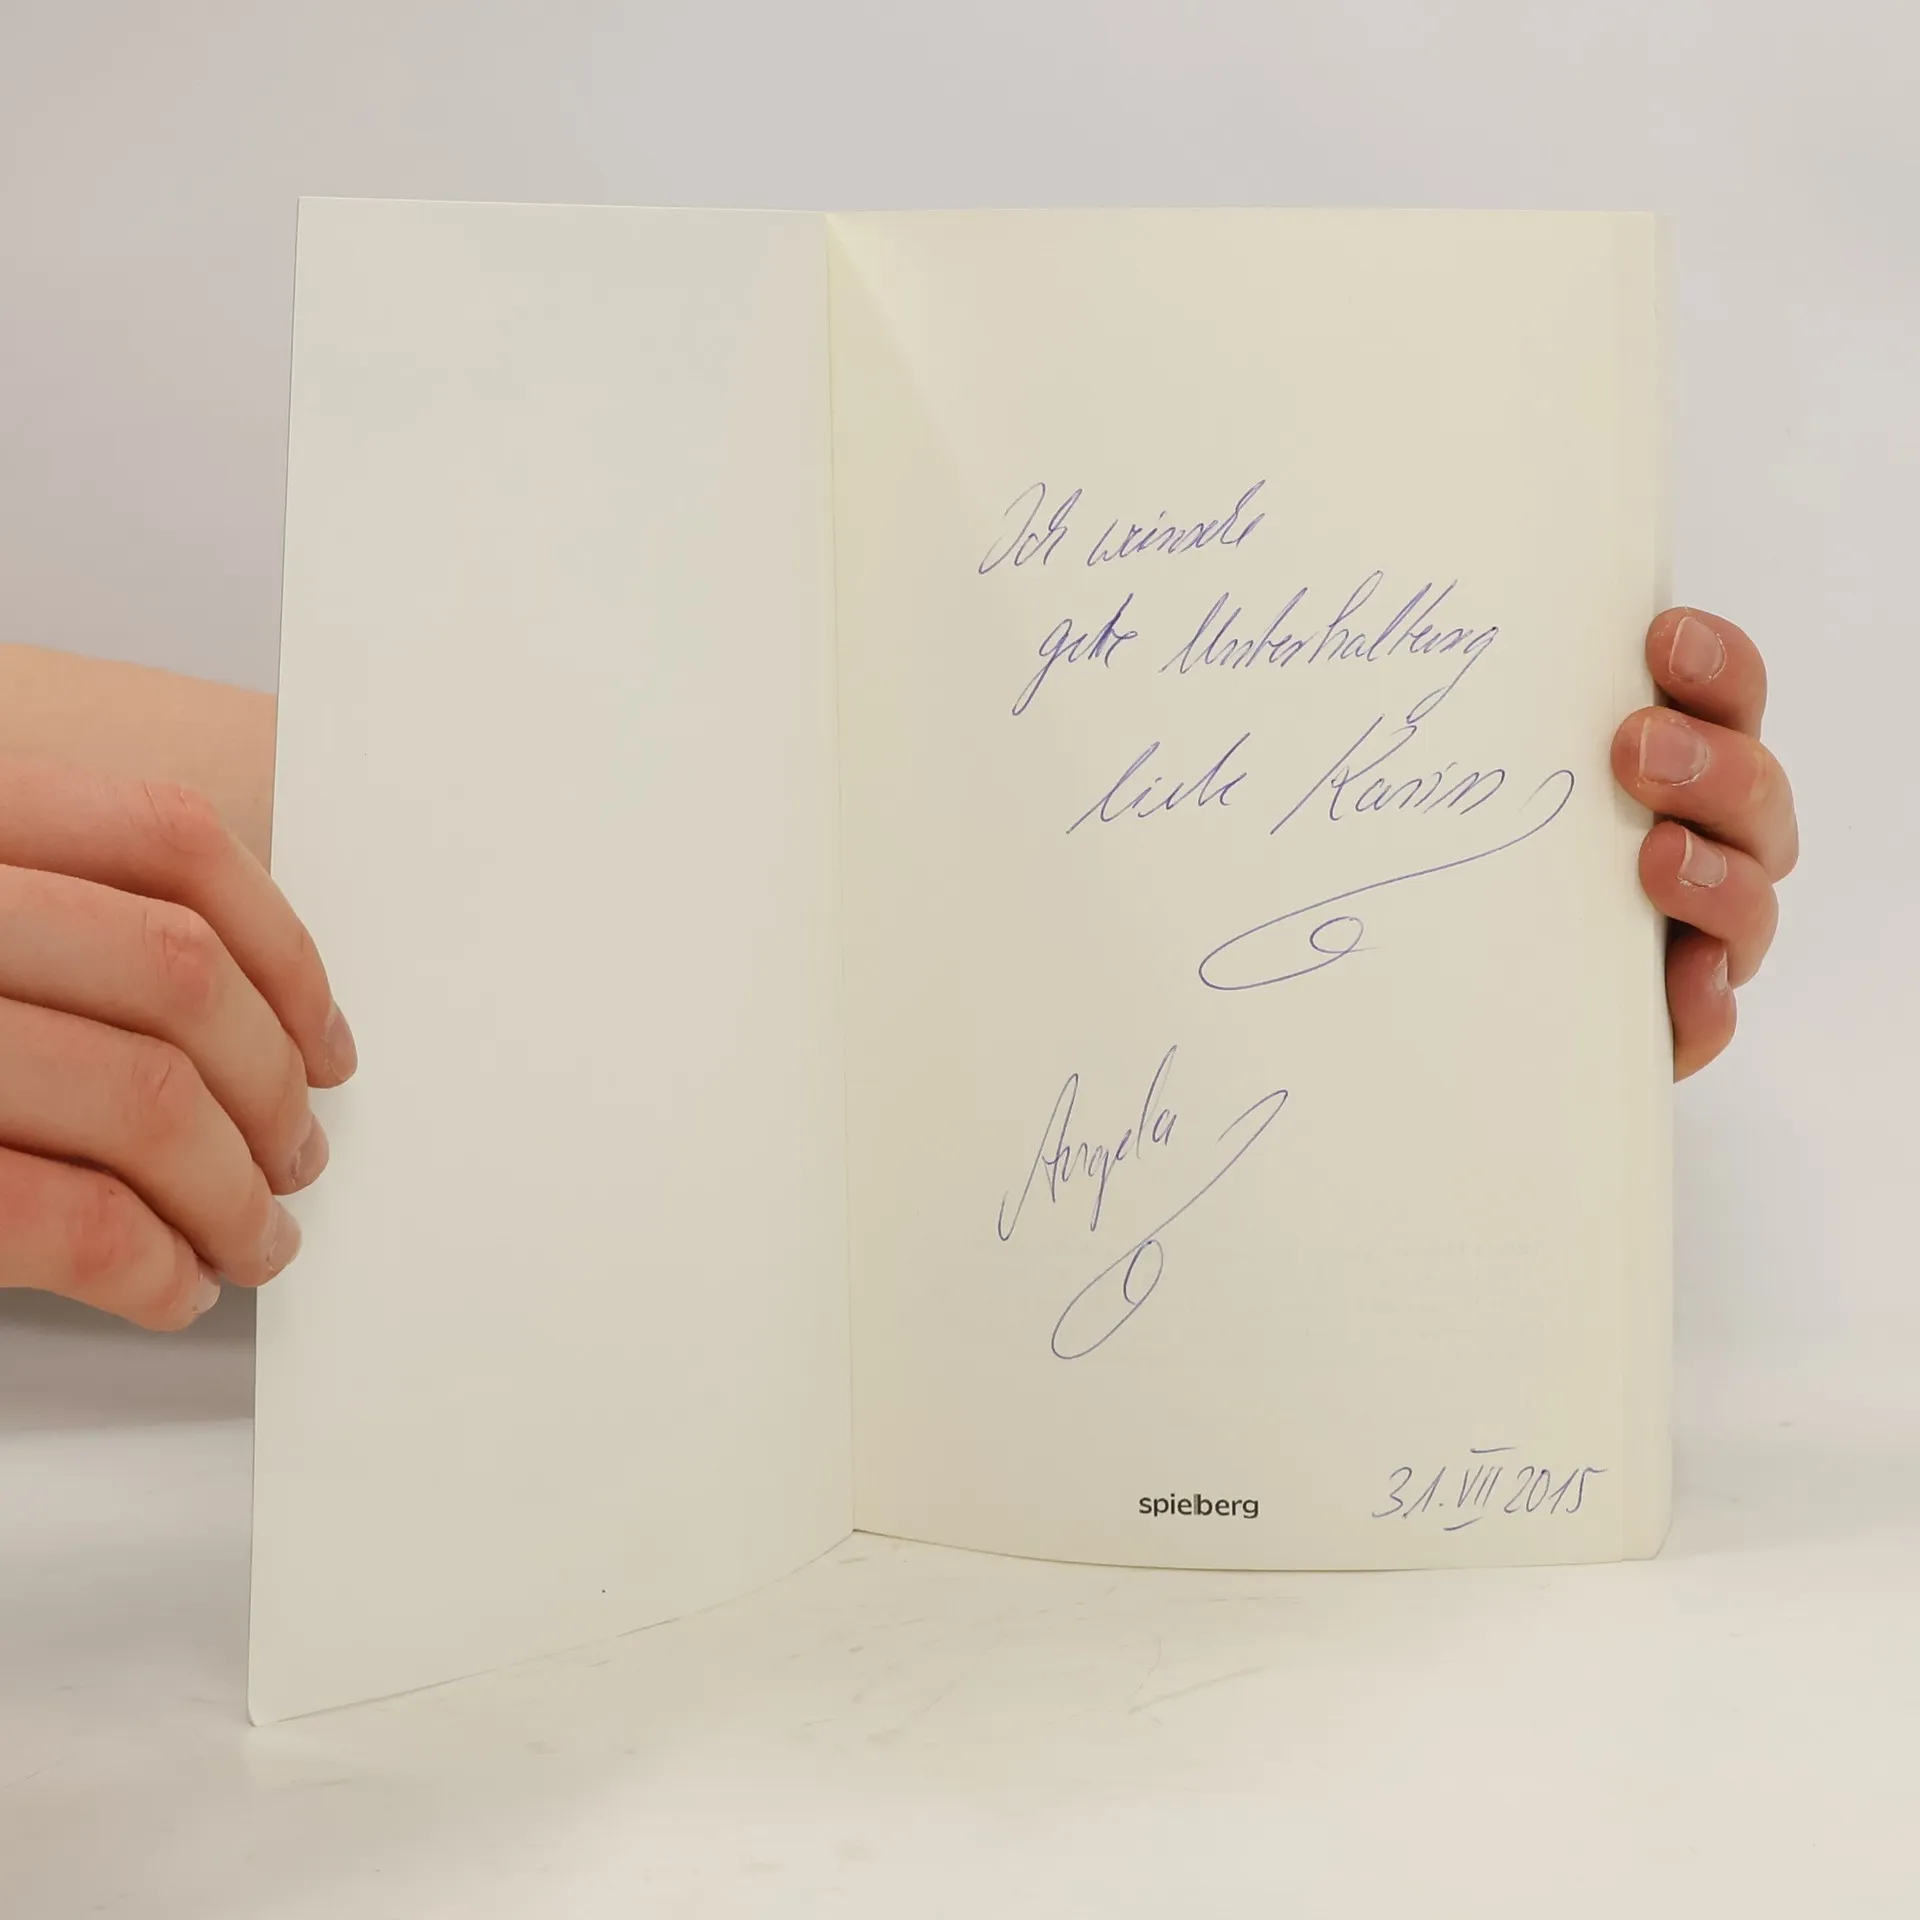 Ich wünsche
gute Unterhaltung
liebe Karin
Angela
spielberg
31. VII 2015